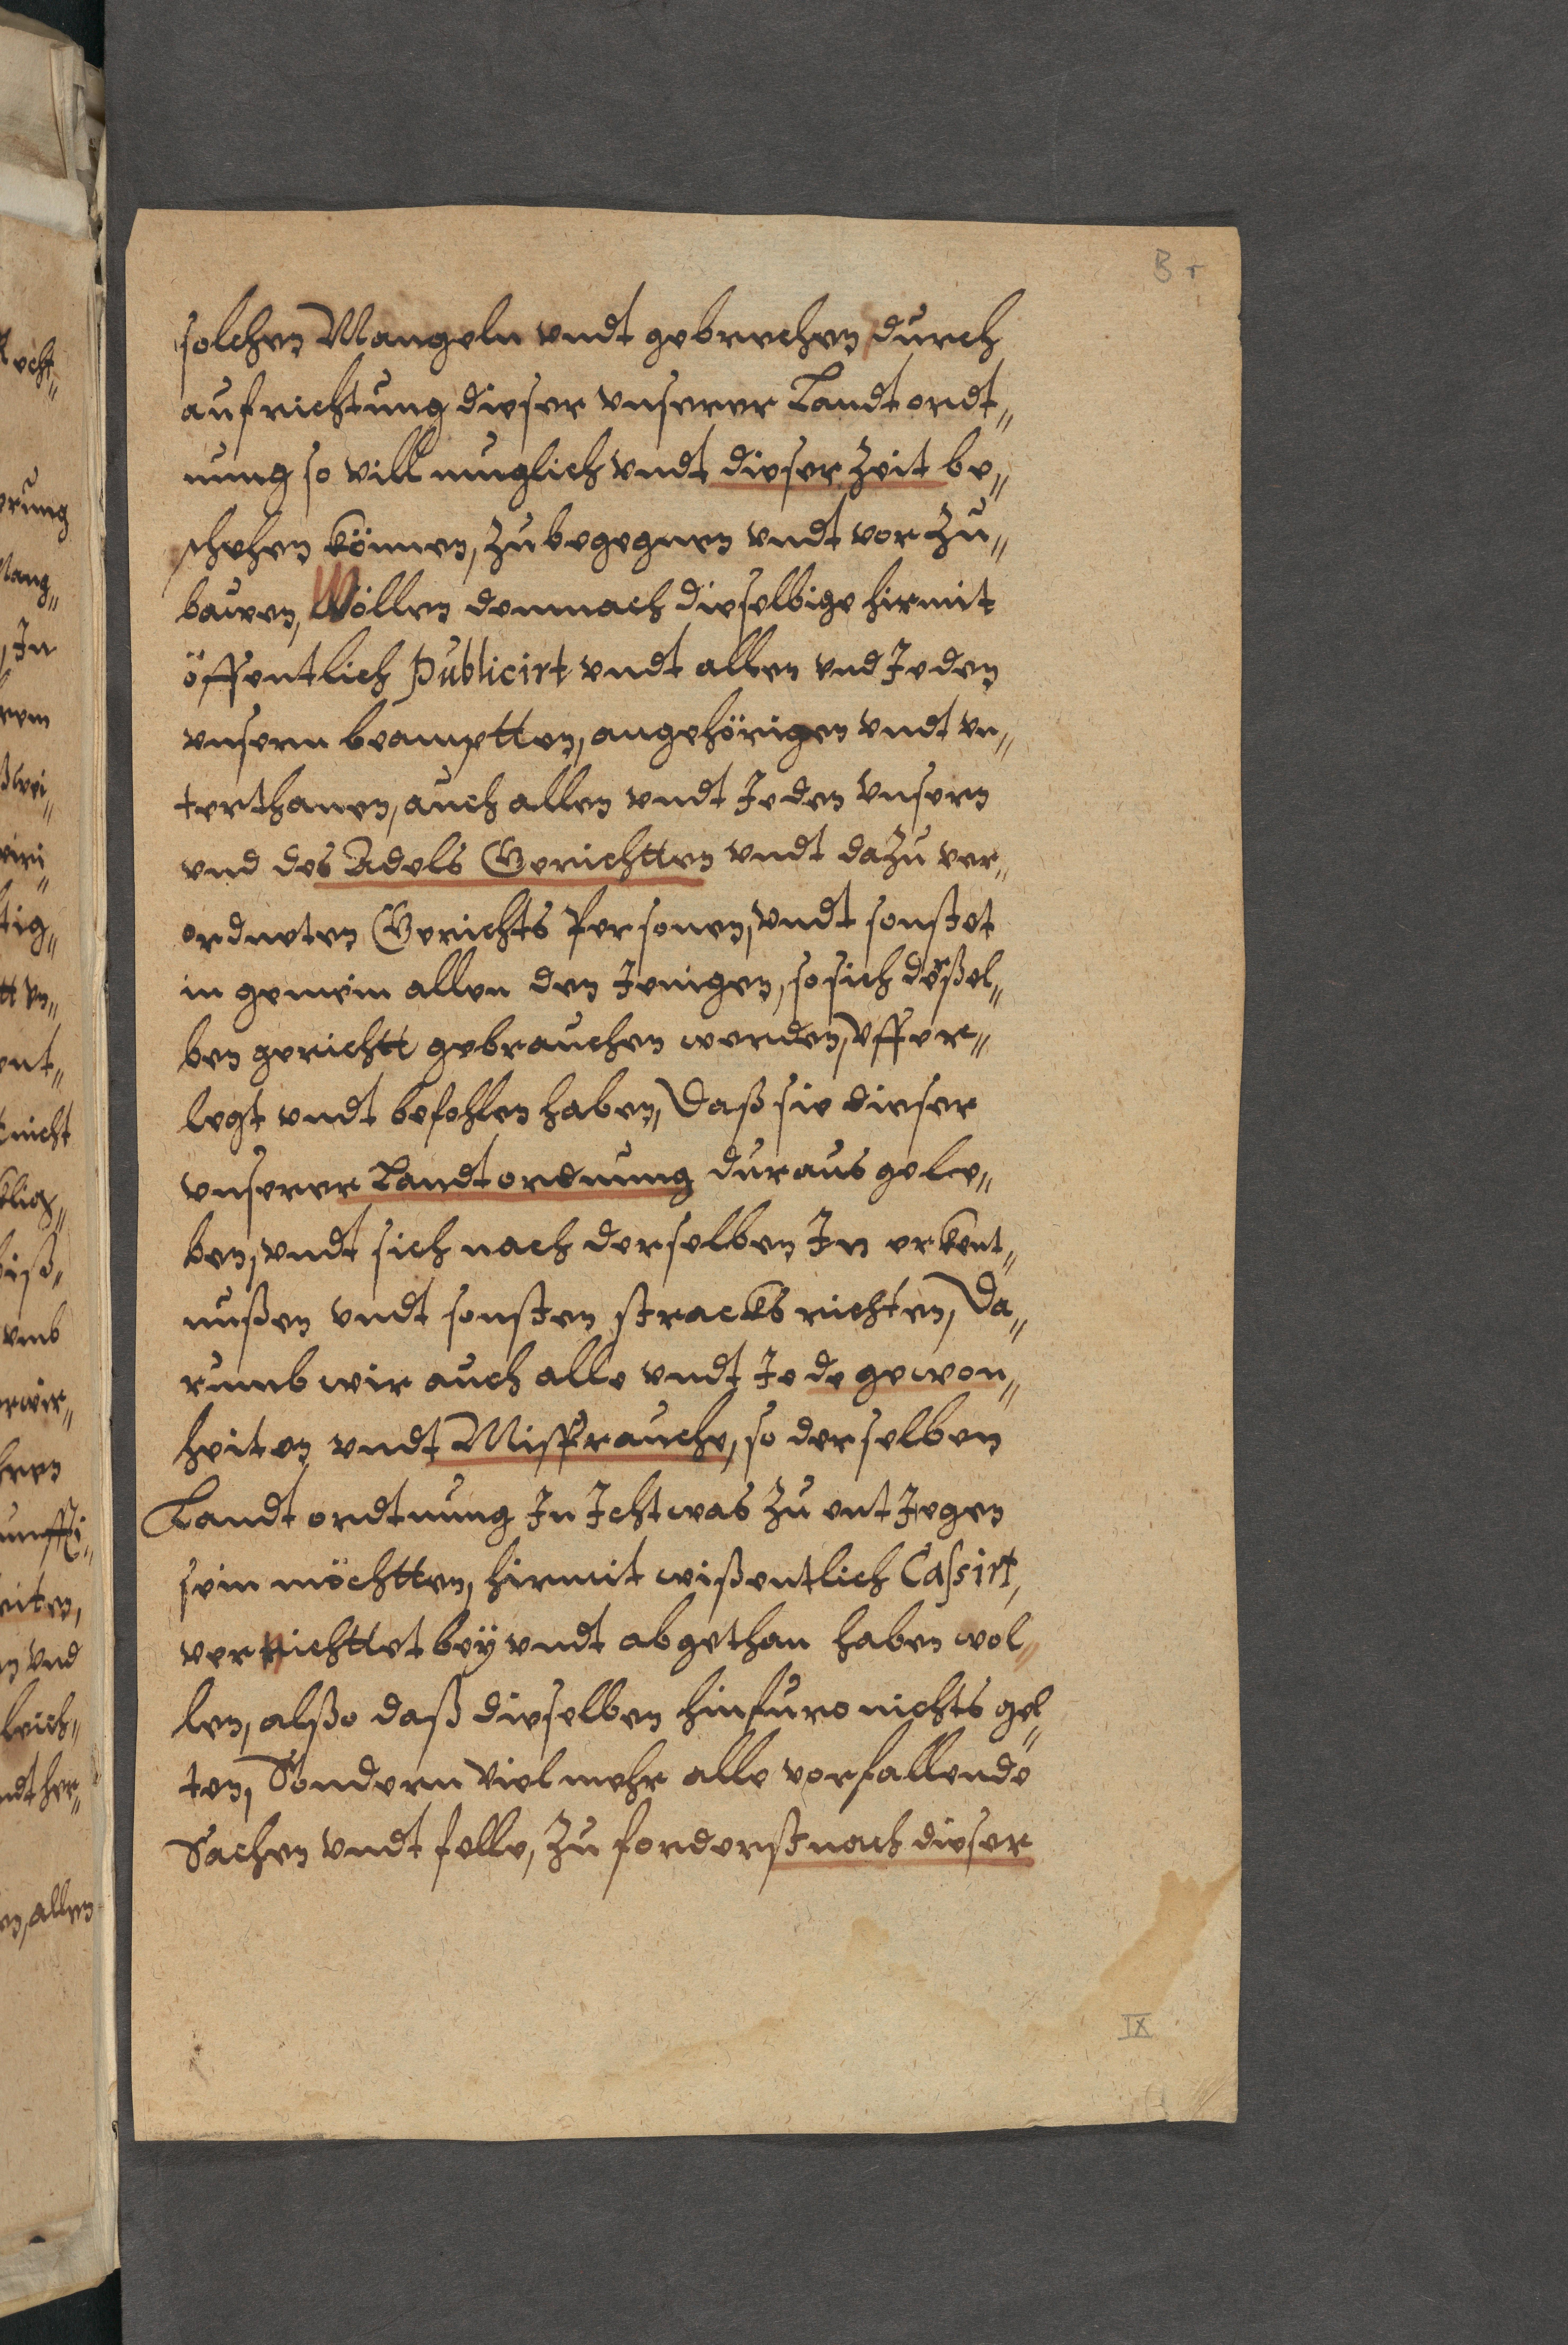 B r
solchen Mangeln vndt gebrechen durch
aufrichtung dieser vnserer Landtordt„
nung so vill muglich vndt dieser Zeit be„
schehen können, Zubegegnen vndt vor Zu„
bawen, Wöllen demnach dieselbige hirmit
öffentlich Publicirt vndt allen vnd Jeden
vnsern beamptten, angehörigen vndt vn„
terthanen, auch allen vndt Jeden vnsern
vnd des Adels Gerichtten vndt dazu ver„
ordneten Gerichts Personen, vndt sonstet
in gemein allen den Jenigen, so sich deßel„
ben gericht gebrauchen werden, vffer„
legt vndt befohlen haben, daß sie dieser
vnserer Landtordnung duraus gele„
ben, vndt sich nach derselben In erkent„
nußen vndt sonsten stracks richten, Da„
rumb wir auch alle vndt Jede gewon„
heiten vndt Missbrauche, so derselben
Landtordtnung In Ichtwas zu entJegen
sein möchtten, hirmit wißentlich Cassirt,
vernichttet bey vndt abgethan haben wol„
len, alßo daß dieselben hinfuro nichts gel„
ten, Sondern vielmehr alle vorfallende
Sachen vndt felle, Zu forderst nach dieser
IX